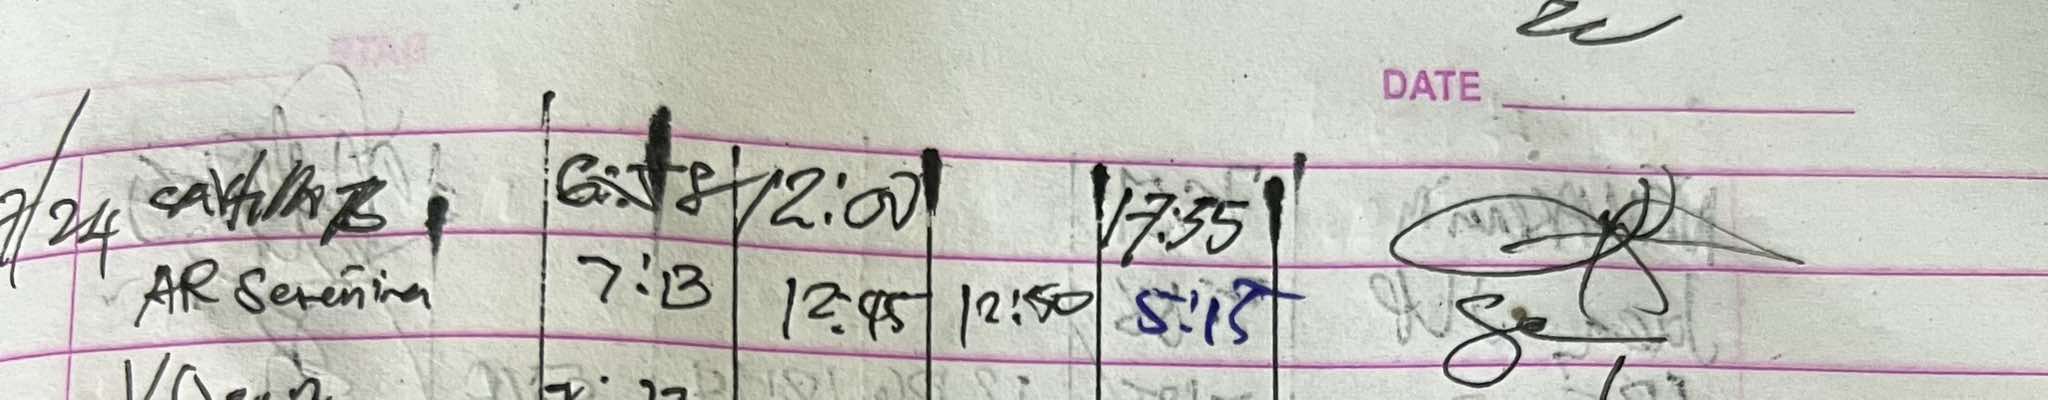 DATE
7/24 castillo B 6:58 12:00 17:35
AR Sereñina 7:13 12:45 12:50 5:15